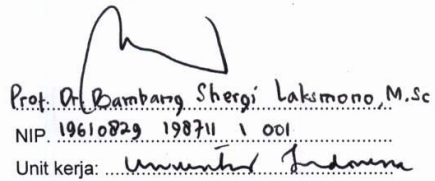 Prof. Dr. Bambang Shergi Laksmono, M.Sc
NIP. 19610829 198711 1 001
Unit kerja: Universitas Indonesia